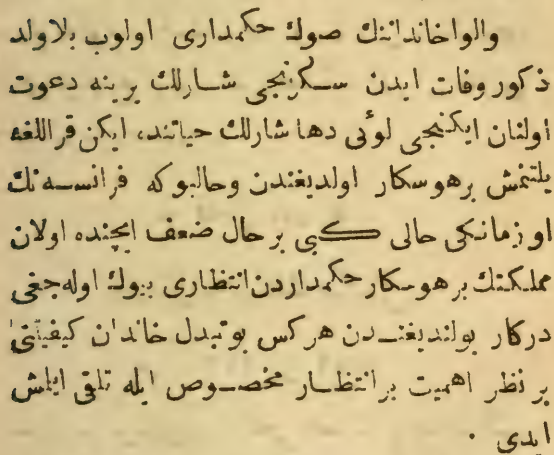 والواخانداننك صوك حكمدارى اولوب بلاولد
ذكور وفات ايدن سكزنجى شارلك يرينه دعوت
اولنان ايكنجى لوئى دها شارلك حياتنده ايكن قراللغه
يلتنمش برهوسكار اولديغندن وحالبوكه فرانسه نك
او زمانكى حالى كبى بر حال ضعف ايچنده اولان
مملكتك بر هوسكار حكمداردن انتظارى بيوك اوله جغى
دركار بولنديغندن هركس بو تبدل خاندان كيفيتنى
بر نظر اهميت بر انتظار مخصوص ايله تلقى ايلمش
ايدى .